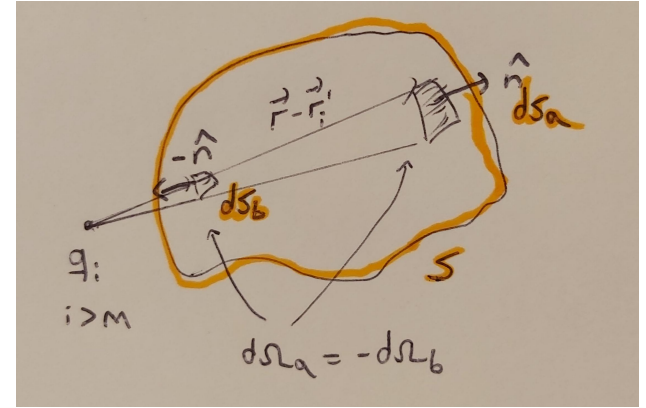 r⃗-r⃗ᵢ'
n̂
dSₐ
-n̂
dS_b
qᵢ
i>m
S
dΩₐ = -dΩ_b